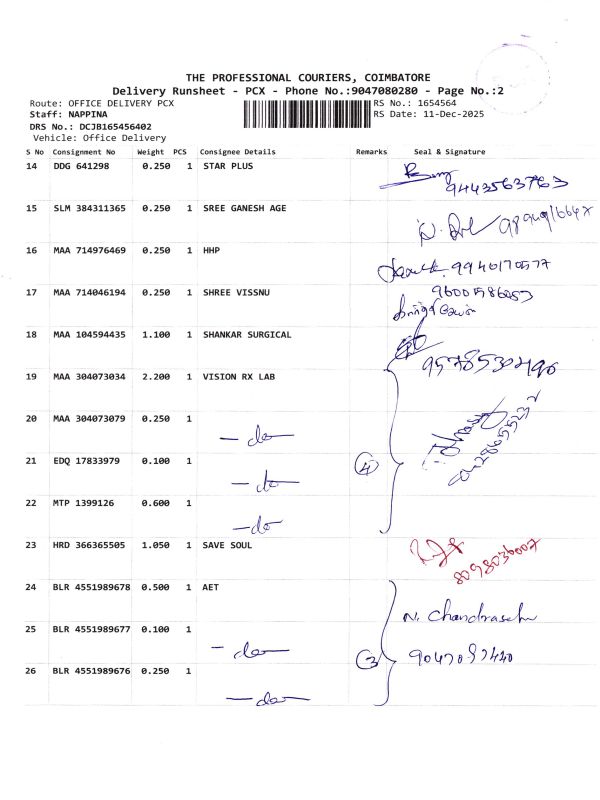 THE PROFESSIONAL COURIERS, COIMBATORE
Delivery Runsheet - PCX - Phone No.:9047080280 - Page No.:2
Route: OFFICE DELIVERY PCX RS No.: 1654564
Staff: NAPPINA RS Date: 11-Dec-2025
DRS No.: DCJB165456402
Vehicle: Office Delivery
S No Consignment No Weight PCS Consignee Details Remarks Seal & Signature
14 DDG 641298 0.250 1 STAR PLUS
9443563763
15 SLM 384311365 0.250 1 SREE GANESH AGE
16 MAA 714976469 0.250 1 HHP
9940170577
17 MAA 714046194 0.250 1 SHREE VISSNU
18 MAA 104594435 1.100 1 SHANKAR SURGICAL
19 MAA 304073034 2.200 1 VISION RX LAB
20 MAA 304073079 0.250 1
- do -
21 EDQ 17833979 0.100 1 4
- do -
22 MTP 1399126 0.600 1
- do -
23 HRD 366365505 1.050 1 SAVE SOUL
8098036007
24 BLR 4551989678 0.500 1 AET
N. Chandrasek
25 BLR 4551989677 0.100 1
- do - 3
26 BLR 4551989676 0.250 1
- do -